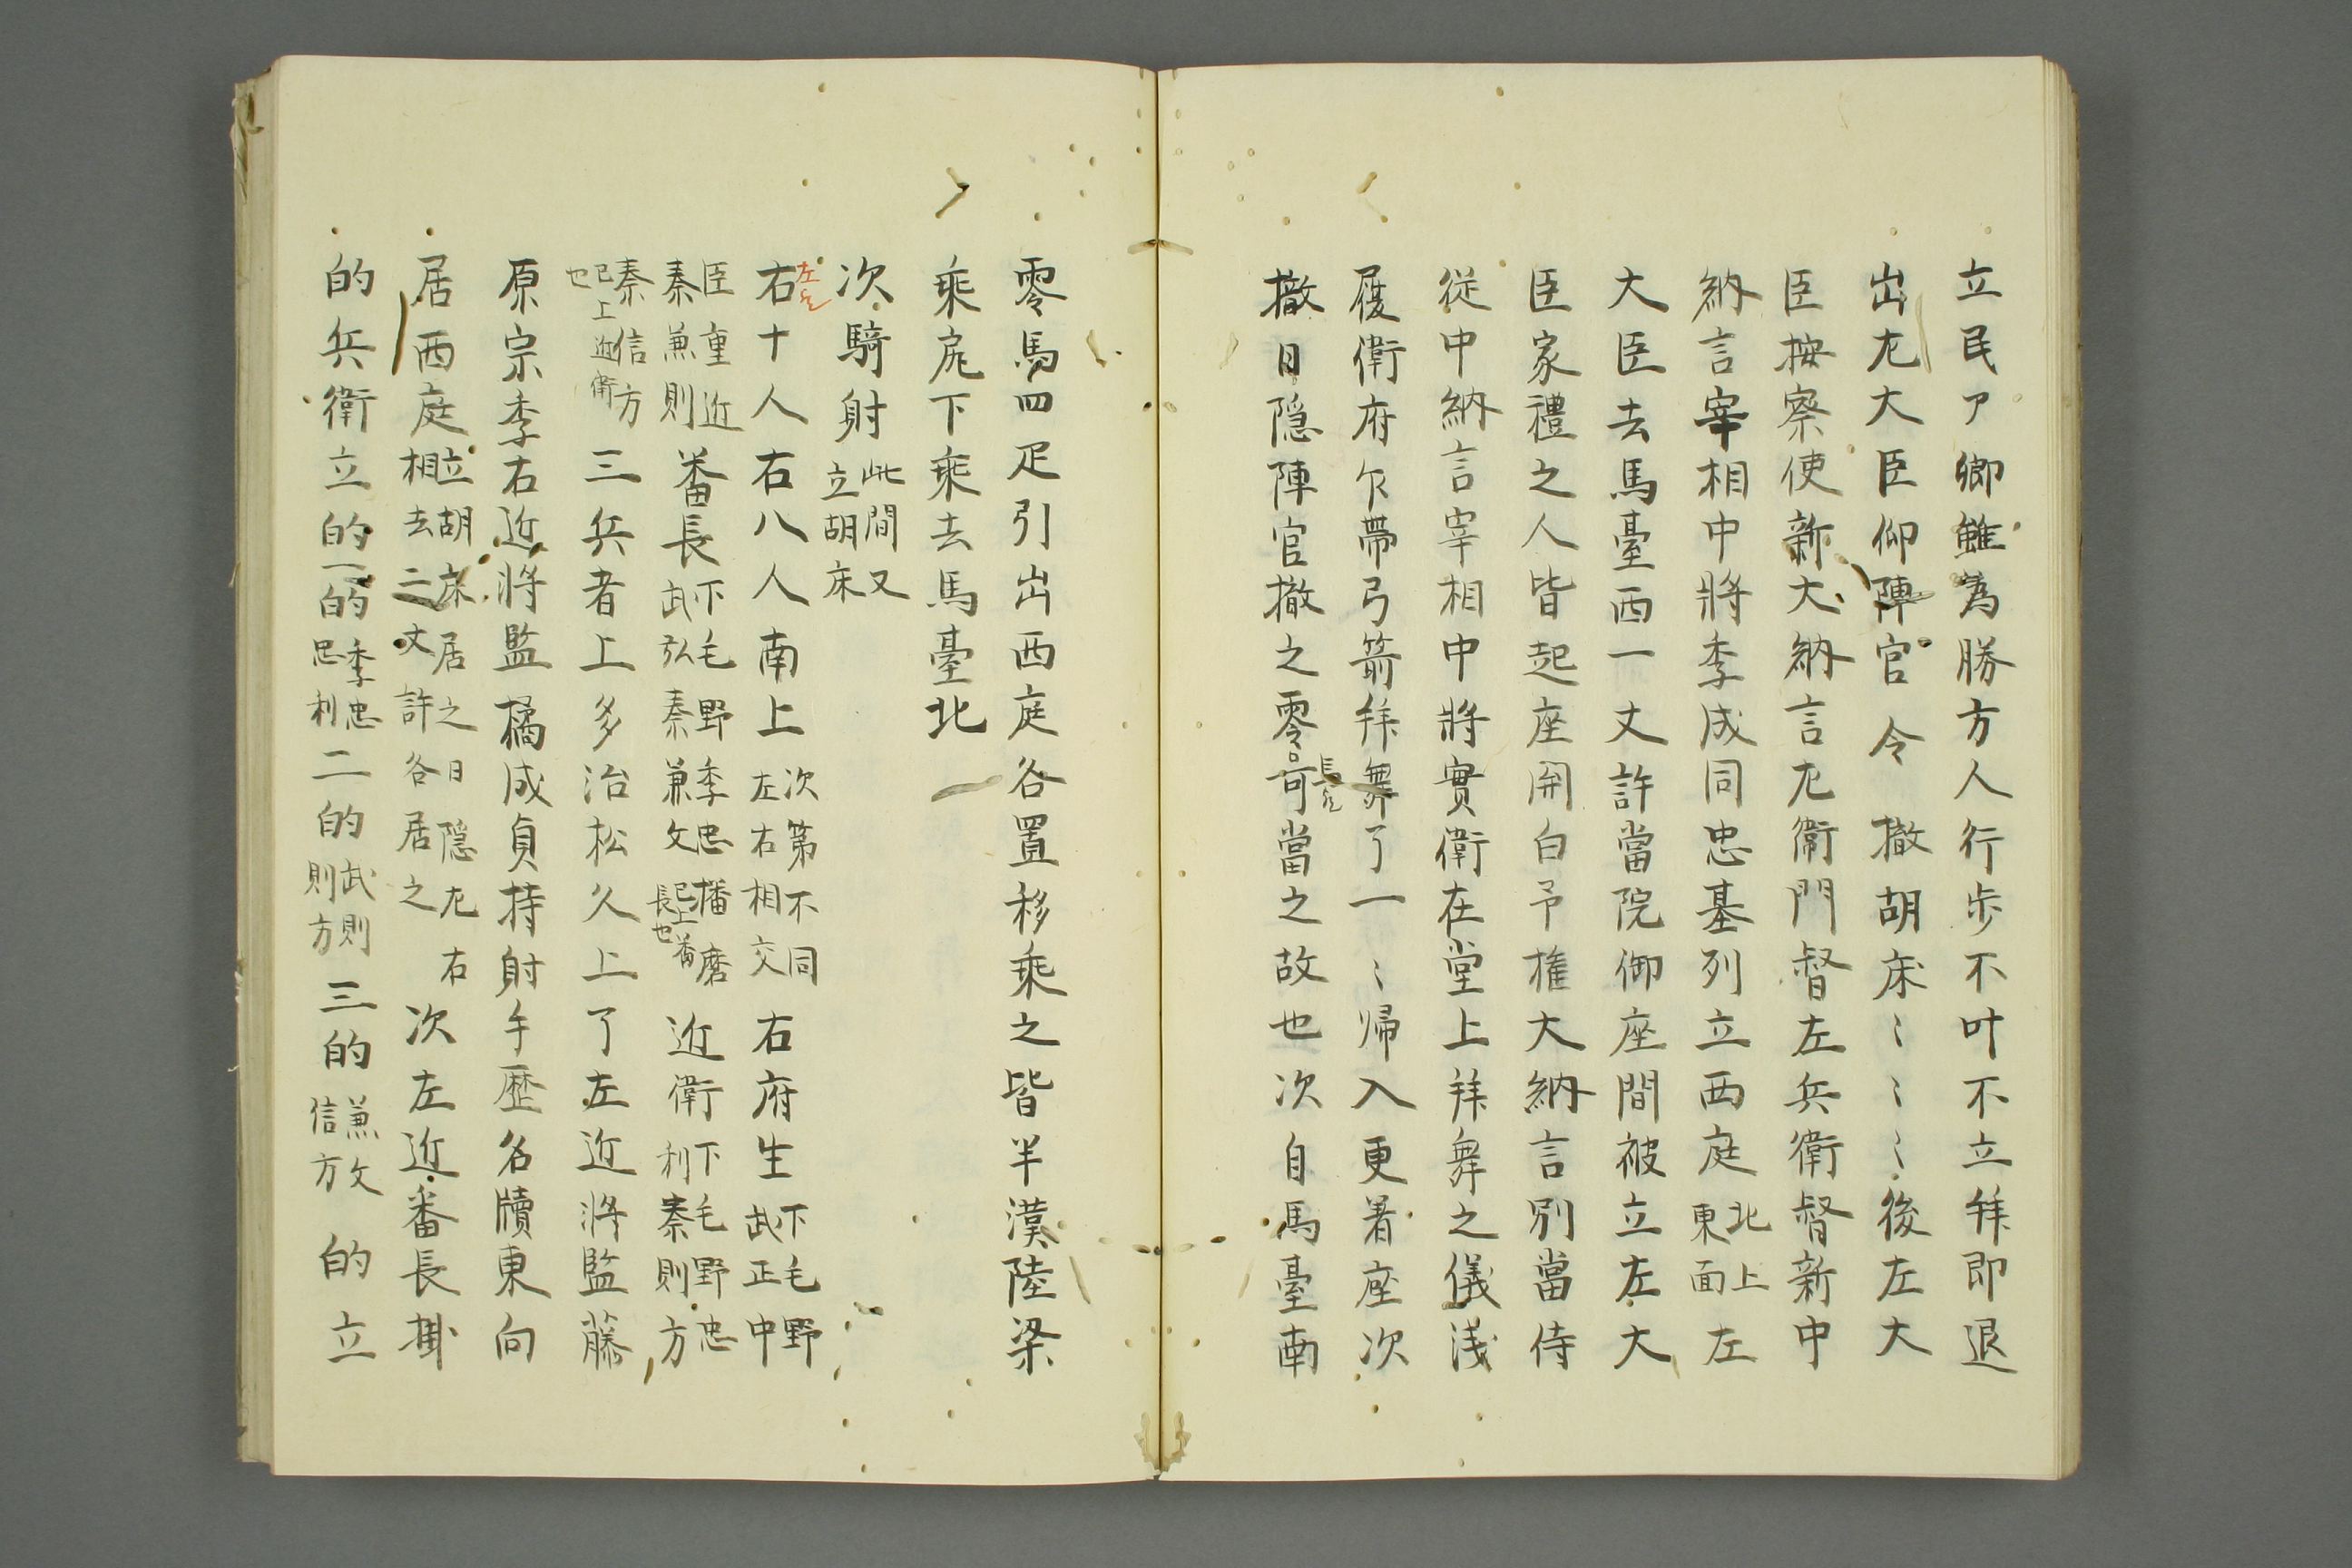 立民ア卿雖為勝方人行歩不叶不立拜即退
出尤大臣仰陣官令撤胡床〻〻〻後左大
臣按察使新大納言尤衛門督左兵衛督新中
納言宰相中將季成同忠基列立西庭北上東面左
大臣去馬臺西一丈許當院御座間被立左大
臣家禮之人皆起座開白予權大納言別當侍
従中納言宰相中將實衡在堂上拜舞之儀淺
履衛府乍帶弓箭拜舞了一〻帰入更著座次
撤日隠陣官撤之零
當之故也次自馬臺南
零馬四疋引出西庭各置移乘之皆半漢陸梁
乘尻下乘去馬臺北
次騎射此間又立胡床
右十人右八人南上次第不同左右相交右府生下毛野武正中
臣重近秦兼則番長下毛野季忠播磨武弘秦兼文已上番長也近衛下毛野忠利秦則方
秦信方已上近衛也三兵者上多治松久上了左近將監藤
原宗季右近將監橘成貞持射手歴名牘東向
居西庭立胡床居之日隠尤右相去二丈許各居之次左近番長掛
的兵衛立的一的季忠忠利二的武則則方三的兼文信方的立